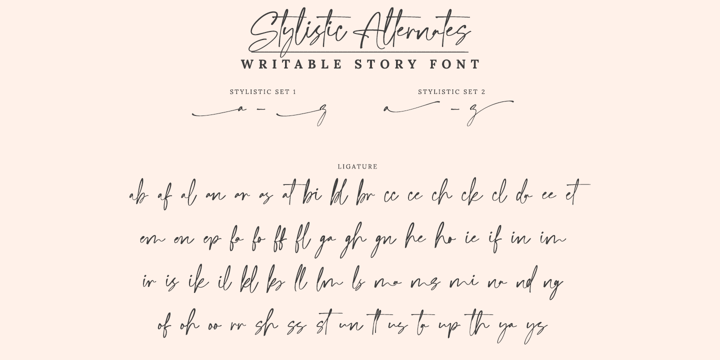 Stylistic Alternates
WRITABLE STORY FONT
STYLISTIC SET 1
a – z
STYLISTIC SET 2
a – z
LIGATURE
ab af al an ar as at bi bl br cc ce ch ck cl do ee et
em en ep fa fo ff fl ga gh gn he ho ie if in im
ir is ik il kl ks ll lm ls ma mz mi na nd ng
of oh oo rr sh ss st un tt us ta up th ya ys